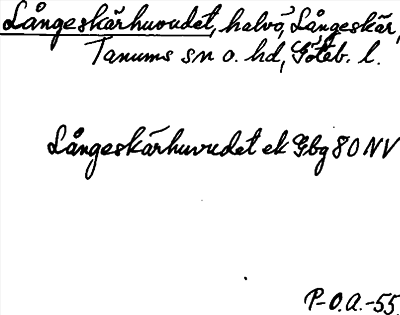 Långeskärhuvudet, halvö, Långeskär,
Tanums sn o. hd, Göteb. l.
Långeskärhuvudet ek Gbg 80 NV
P-O.A.-55.